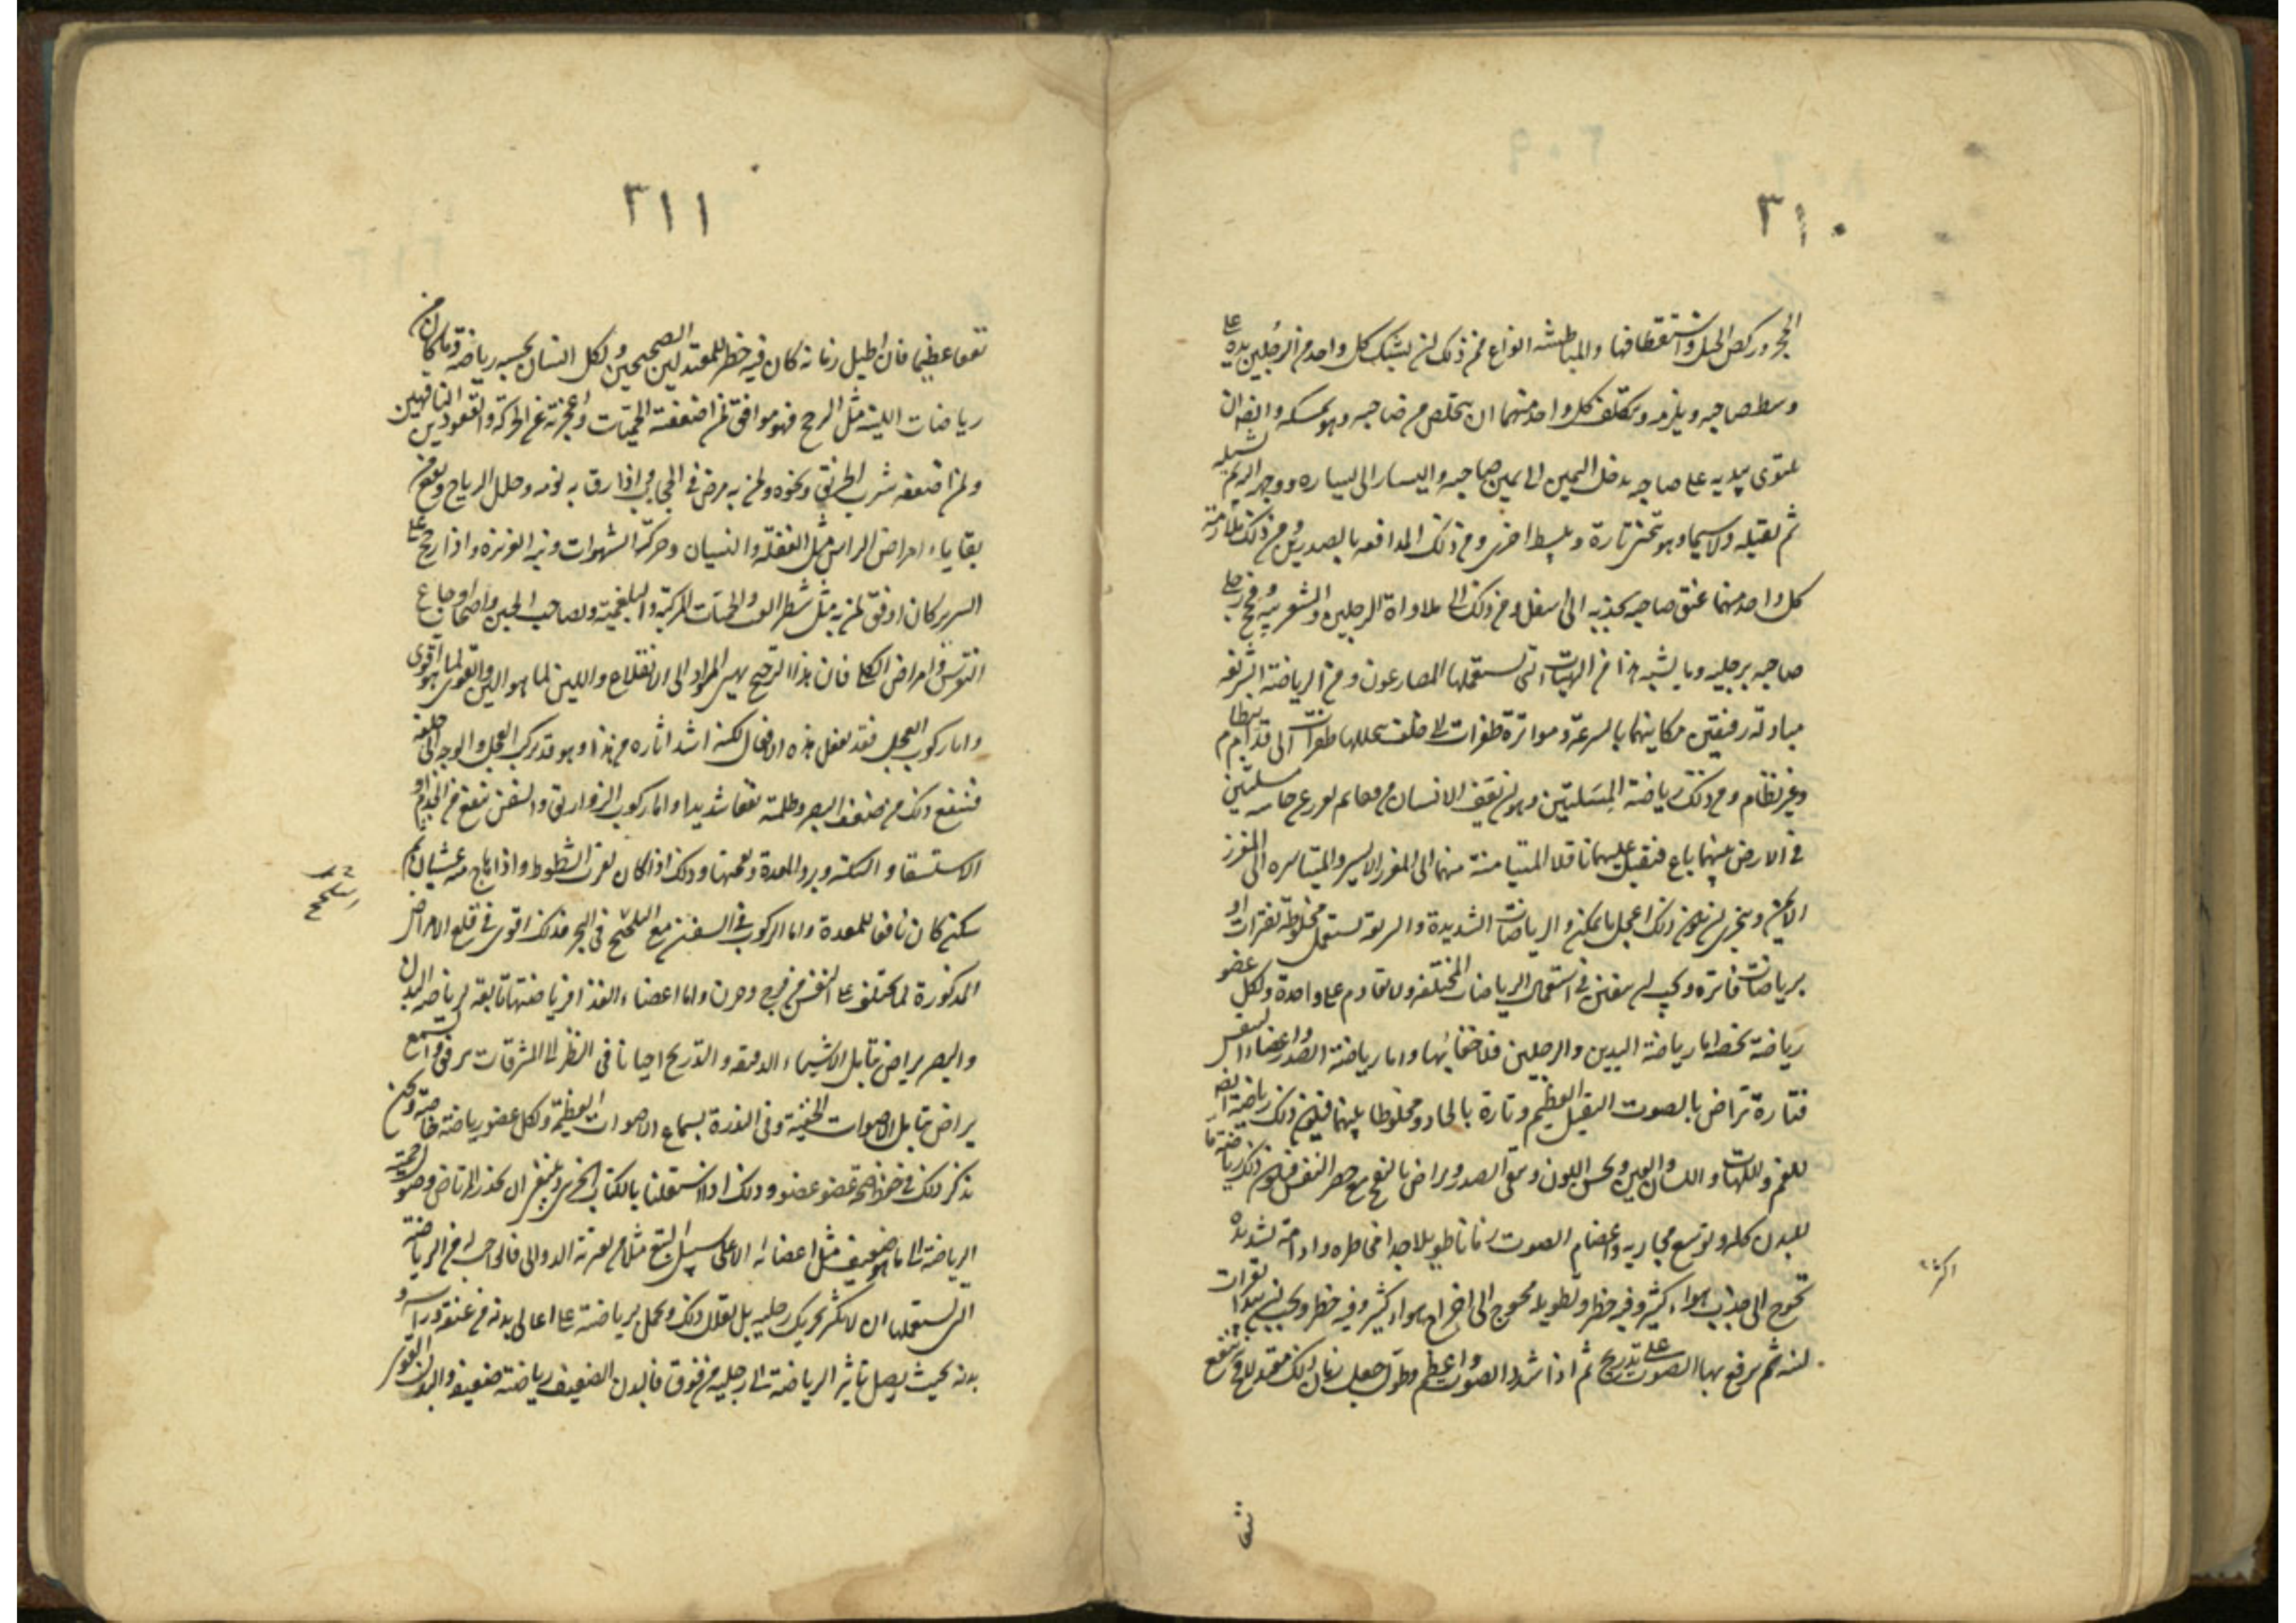 ٣١٠
الحجر وركض الخيل واستقطافها والمباطشه انواع فمن ذلك ان يشبك كل واحد من الرجلين يده على
وسط صاحبه ويلزمه ويتكلف كل واحد منهما ان يتخلص من صاحبه وهو يمسكه وايضا ان
يلتوى بيديه على صاحبه يدخل اليمين الى يمين صاحبه واليسار الى يساره ووجهه اليه ثم يشيله
ثم يقبله ولا سيما وهو ينحنى تارة وينبسط اخرى ومن ذلك المدافعه بالصدرين ومن ذلك ملازمة
كل واحد منهما عنق صاحبه يجذبه الى اسفل ومن ذلك ملاواة الرجلين والشغزبيه وفحج رجلى
صاحبه برجليه وما يشبه هذا من الهيات التى يستعملها المصارعون ومن الرياضة السريعه
مبادلة رفيقين مكانيهما بالسرعة ومواترة طفرات الى خلف يتخللها طفرات الى قدام بنظام
وغير نظام ومن ذلك رياضة المسلتين وهو ان يقف الانسان موقفا ثم يغرز عن جانبيه مسلتين
فى الارض بينهما باع فيقبل عليهما ناقلا المتيامنة منهما الى المغرز الايسر والمتياسره الى المغرز
الايمن ويتحرى ان يكون ذلك اعجل ما يمكن والرياضات الشديدة والسريعة تستعمل مخلوطة بفترات او
برياضات فاترة ويجب ان يتفنن فى استعمال الرياضات المختلفه ولا يقام على واحدة ولكل عضو
رياضة تخصه اما رياضة اليدين والرجلين فلا خفاء بها واما رياضة الصدر واعضاء النفس
فتارة تراض بالصوت الثقيل العظيم وتارة بالحاد ومخلوطا بينهما فيكون ذلك رياضة ايضا
للفم واللهات واللسان والعين ويحسن اللون وينقى الصدر ويراض بالنفخ مع حصر النفس فيكون ذلك رياضة ما
للبدن كله ويوسع مجاريه واعظام الصوت زمانا طويلا جدا مخاطره وادامة شديده
تحوج الى جذب هواء كثير وفيه خطر وتطويله محوج الى اخراج هواء كثير وفيه خطر ويجب ان يبتدا بقراءة
لينه ثم يرفع بها الصوت على تدريج ثم اذا شدد الصوت واعظم وطول جعل زمان ذلك معتدلا فينفع
٣١١
نفعا عظيما فان اطيل زمانه كان فيه خطر للمعتدلين الصحيحين ولكل انسان بحسبه رياضة وما كان من
رياضات اللينة مثل الترجح فهو موافق لمن اضعفته الحميات واعجزته عن الحركة والقعود والناقهين
ولمن اضعفه شرب الخربق ونحوه ولمن به مرض فى الحجاب واذا رفق به نوم وحلل الرياح ونفع من
بقاياء امراض الراس مثل الغفلة والنسيان وحرك الشهوات ونبه الغريزه واذا رجح على
السرير كان اوفق لمن به مثل شطر الغب والحميات المركبة والبلغمية ولصاحب الحبن واصحاب اوجاع
النقرس وامراض الكلى فان هذا الترجيح يهيى المواد الى الانقلاع واللين لما هو الين والقوى لما هو اقوى
واما ركوب العجل فقد يفعل هذه الافعال لكنه اشد اثاره من هذا وهو قد يركب العجل والوجه الى خلف
فينفع ذلك من ضعف البصر وظلمته نفعا شديدا واما ركوب الزواريق والسفن فينفع من الجذام او
الاستسقا والسكته وبرد المعدة ونفخها وذلك اذا كان بقرب الشطوط واذا هاج منه غثيان ثم
سكن كان نافعا للمعدة واما الركوب فى السفن مع التلجيج فى البحر فذلك اقوى فى قلع الامراض
المذكورة لما يختلف على النفس من فرح وحزن واما اعضاء الغذا فرياضتها تابعة لرياضة البدن
والبصر يراض بتامل الاشياء الدقيقه والتدريج احيانا فى النظر الى المشرقات برفق والسمع
يراض بتامل الاصوات الخفية وفى الندرة بسماع الاصوات العظيمة ولكل عضو رياضة خاصة ونحن
نذكر ذلك فى حفظ صحة عضو عضو وذلك اذا اشتغلنا بالكتاب الجزئى وينبغى ان يحذر المرتاض وصول حمية
الرياضة الى ما هو ضعيف مثل اعضائه الا على سبيل التبع مثلا من يعتريه الدوالى فالواجب له من الرياضة
التى يستعملها ان لا يكثر تحريك رجليه بل يقلل ذلك ويحمل برياضته على اعالى بدنه من عنقه وراسه و
بدنه بحيث يصل تاثير الرياضة الى رجليه من فوق فالبدن الضعيف رياضته ضعيفه والبدن القوى